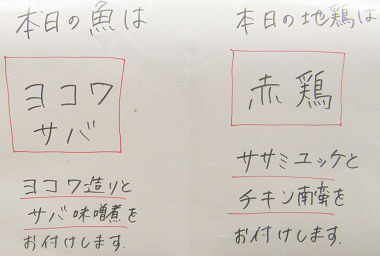 本日の魚は
ヨコワ
サバ
ヨコワ造りと
サバ味噌煮を
お付けします.
本日の地鶏は
赤鶏
ササミユッケと
チキン南蛮を
お付けします.